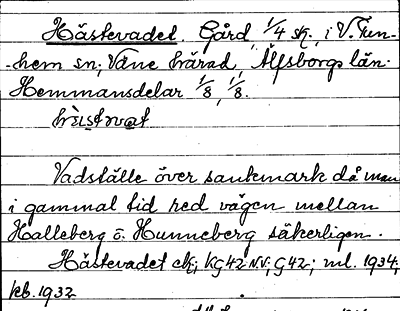 Hästevadet. Gård 1/4 sk. i V. Tun-
-hem sn, Väne härad Älfsborgs län.
Hemmansdelar 1/8, 1/8.
Vadställe över sankmark då man
i gammal tid red vägen mellan
Halleberg o. Hunneberg säkerligen.
Hästevadet ek; KG42 NV; G42; ml. 1934;
kb. 1932